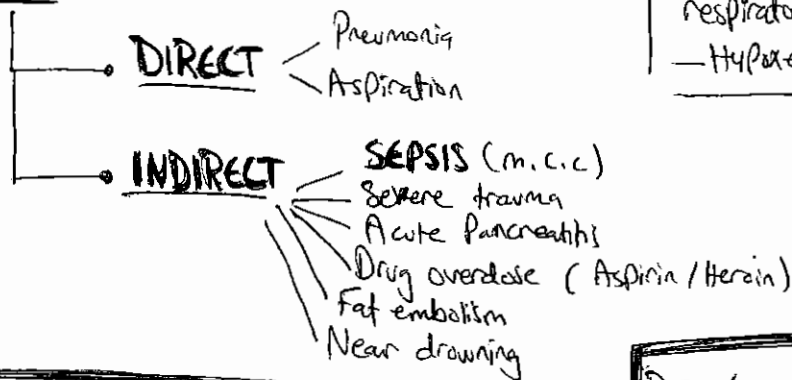 DIRECT
Pneumonia
Aspiration
INDIRECT
SEPSIS (m.c.c)
Severe trauma
Acute Pancreatitis
Drug overdose (Aspirin / Heroin)
Fat embolism
Near drowning